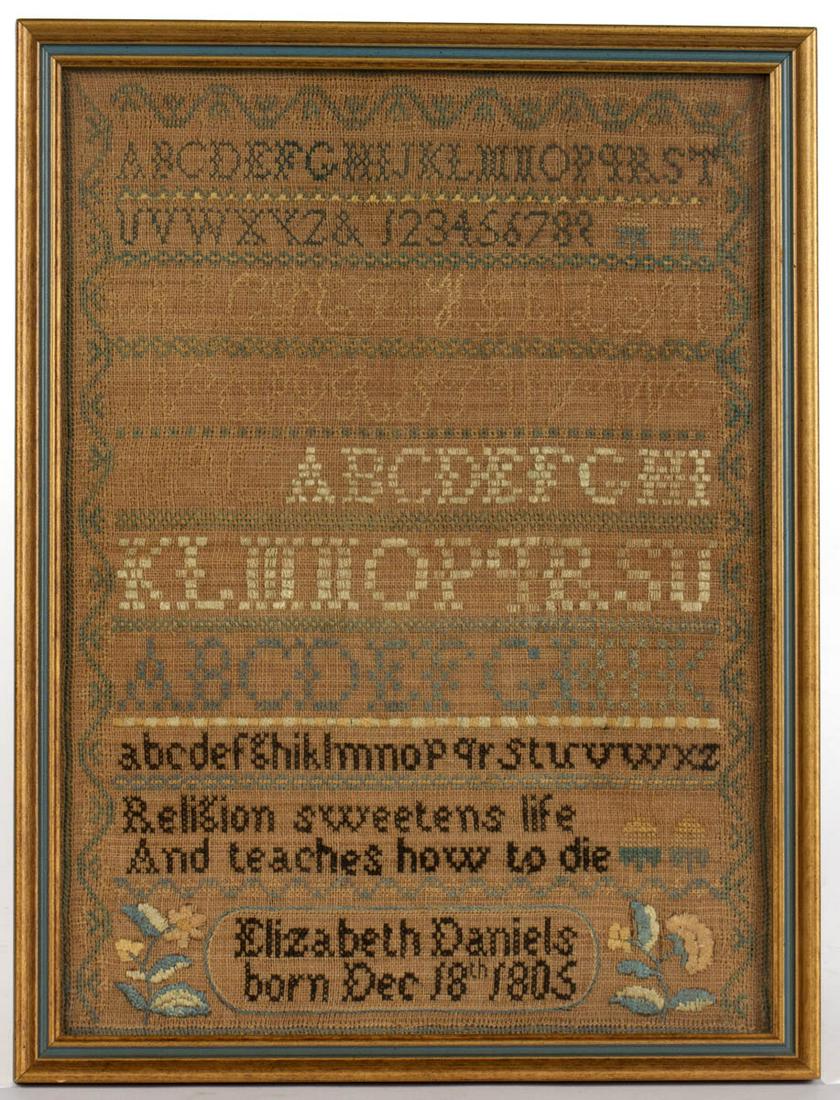 ABCDEFGHIJKLMNOPQRST
UVWXYZ& 123456789
ABCDEFGHI
KLMNOPQRSU
ABCDEFGHIK
abcdefghiklmnopqrstuvwxz
Religion sweetens life
And teaches how to die
Elizabeth Daniels
born Dec 18th 1805